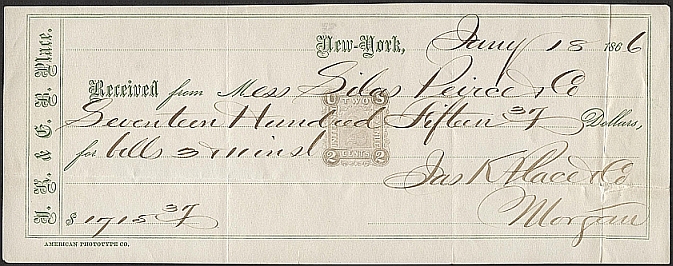 J. K. & E. B. Place.
New-York, Jany 18 1866
Received from Mess Silas Peirce & Co
Seventeen Hundred Fifteen 37 Dollars,
for bill 3 inst
U S
TWO
2 CENTS 2
Jas K Place & Co
Morgan
$ 1715 37
AMERICAN PHOTOTYPE CO.